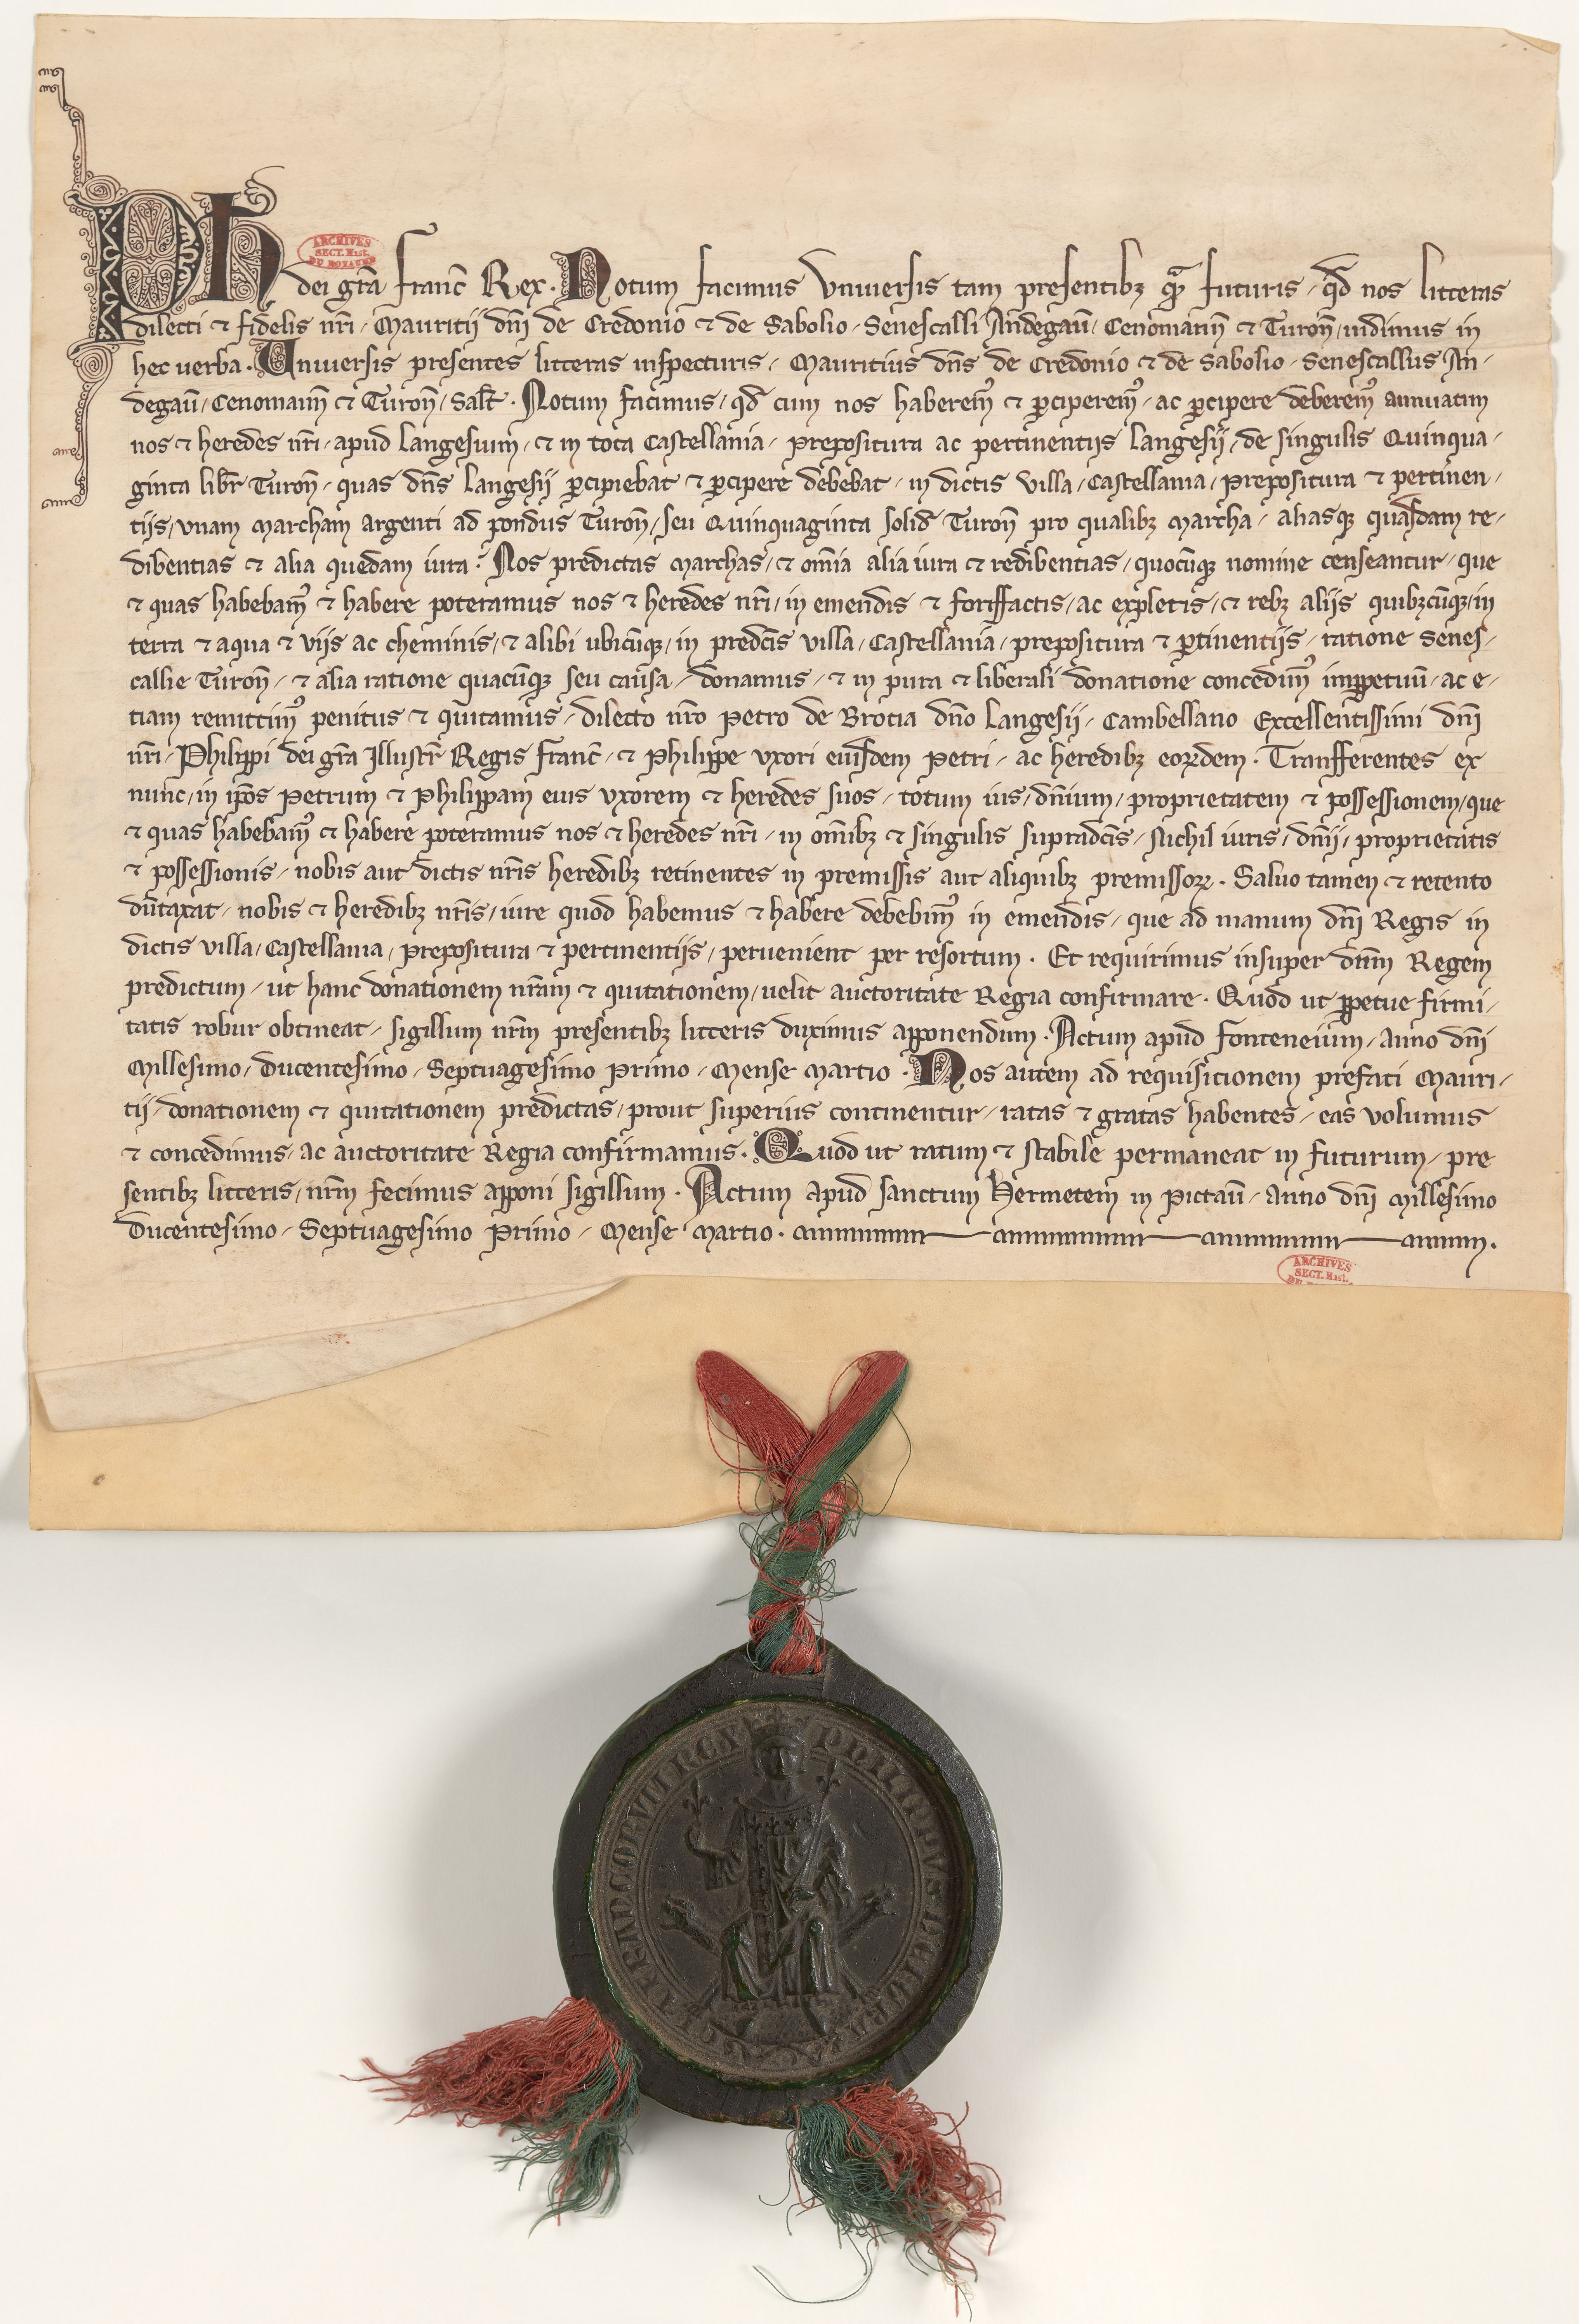 Ph dei gr̃a franc̃ Rex. Notum facimus vniuersis tam presentibꝫ qᷓꝫ futuris / qd̃ nos litteras
dilecti ⁊ fidelis nr̃i / Mauritij dñi de Credonio ⁊ de Sabolio / Senescalli Andegaũ / Cenomanñ ⁊ Turoñ / uidimus in
hec uerba. Vniuersis presentes litteras inspecturis / Mauritius dñs de Credonio ⁊ de Sabolio / Senescallus An-
degaũ / Cenomanñ ⁊ Turoñ / salt̃. Notum facimus / qd̃ cum nos haberemꝰ ⁊ ꝑciperemꝰ / ac ꝑcipere deberemꝰ annuatim
nos ⁊ heredes nr̃i / apud Langesium / ⁊ in tota Castellania / prepositura ac pertinentijs Langesij / de singulis Quinqua-
ginta libr̃ Turoñ / quas dñs Langesij ꝑcipiebat ⁊ ꝑcipere debebat / in dictis villa / Castellania / prepositura ⁊ pertinen-
tijs / vnam marcham argenti ad pondus Turoñ / seu Quinquaginta solid̃ Turoñ pro qualibꝫ marcha / aliasqꝫ quasdam re-
dibentias ⁊ alia quedam iura. Nos predictas marchas / ⁊ om̃ia alia iura ⁊ redibentias / quocũqꝫ nomine censeantur / que
⁊ quas habebamꝰ ⁊ habere poteramus nos ⁊ heredes nr̃i / in emendis ⁊ foriffactis / ac expletis / ⁊ rebꝫ alijs quibꝫcũqꝫ / in
terra ⁊ aqua ⁊ vijs ac cheminis / ⁊ alibi ubicũqꝫ / in predc̃is villa / Castellania / prepositura ⁊ ꝑtinentijs / ratione Senes-
callie Turoñ / ⁊ alia ratione quacũqꝫ seu causa / donamus / ⁊ in pura ⁊ liberali donatione concedimꝰ imꝑpetuũ / ac e-
tiam remittimꝰ penitus ⁊ quitamus / dilecto nr̃o Petro de Brocia dño Langesij / Cambellano Excellentissimi dñi
nr̃i / Philippi dei gr̃a Illustr̃ Regis franc̃ / ⁊ Philippe vxori eiusdem Petri / ac heredibꝫ eoꝝdem. Transferentes ex
nunc / in ip̃os Petrum ⁊ Philippam eius vxorem ⁊ heredes suos / totum ius / dñium / proprietatem ⁊ possessionem / que
⁊ quas habebamꝰ ⁊ habere poteramus nos ⁊ heredes nr̃i / in om̃ibꝫ ⁊ singulis supradc̃is / Nichil iuris / dñij / proprietatis
⁊ possessionis / nobis aut dictis nr̃is heredibꝫ retinentes in premissis aut aliquibꝫ premissoꝝ. Saluo tamen ⁊ retento
dũtaxat / nobis ⁊ heredibꝫ nr̃is / iure quod habemus ⁊ habere debebimꝰ in emendis / que ad manum dñi Regis in
dictis villa / Castellania / prepositura ⁊ pertinentijs / peruenient per resortum. Et requirimus insuper dñm Regem
predictum / ut hanc donationem nr̃am ⁊ quitationem / uelit auctoritate Regia confirmare. Quod ut ꝑpetue firmi-
tatis robur obtineat / sigillum nr̃m presentibꝫ litteris duximus apponendum. Actum apud fonteneium / anno dñi
Millesimo / Ducentesimo / Septuagesimo Primo / Mense Martio. Nos autem ad requisitionem prefati Mauri-
tij / donationem ⁊ quitationem predictas / prout superius continentur / ratas ⁊ gratas habentes / eas volumus
⁊ concedimus / ac auctoritate Regia confirmamus. Quod ut ratum ⁊ stabile permaneat in futurum / pre
sentibꝫ litteris / nr̃m fecimus apponi sigillum. Actum apud sanctum Hermetem in Pictaũ / anno dñi Millesimo
Ducentesimo / Septuagesimo Primo / Mense Martio.
ARCHIVES
SECT. Hist.
DU ROYAUME
ARCHIVES
SECT. Hist.
PHILIPPVS DEI GRA
FRANCORVM REX